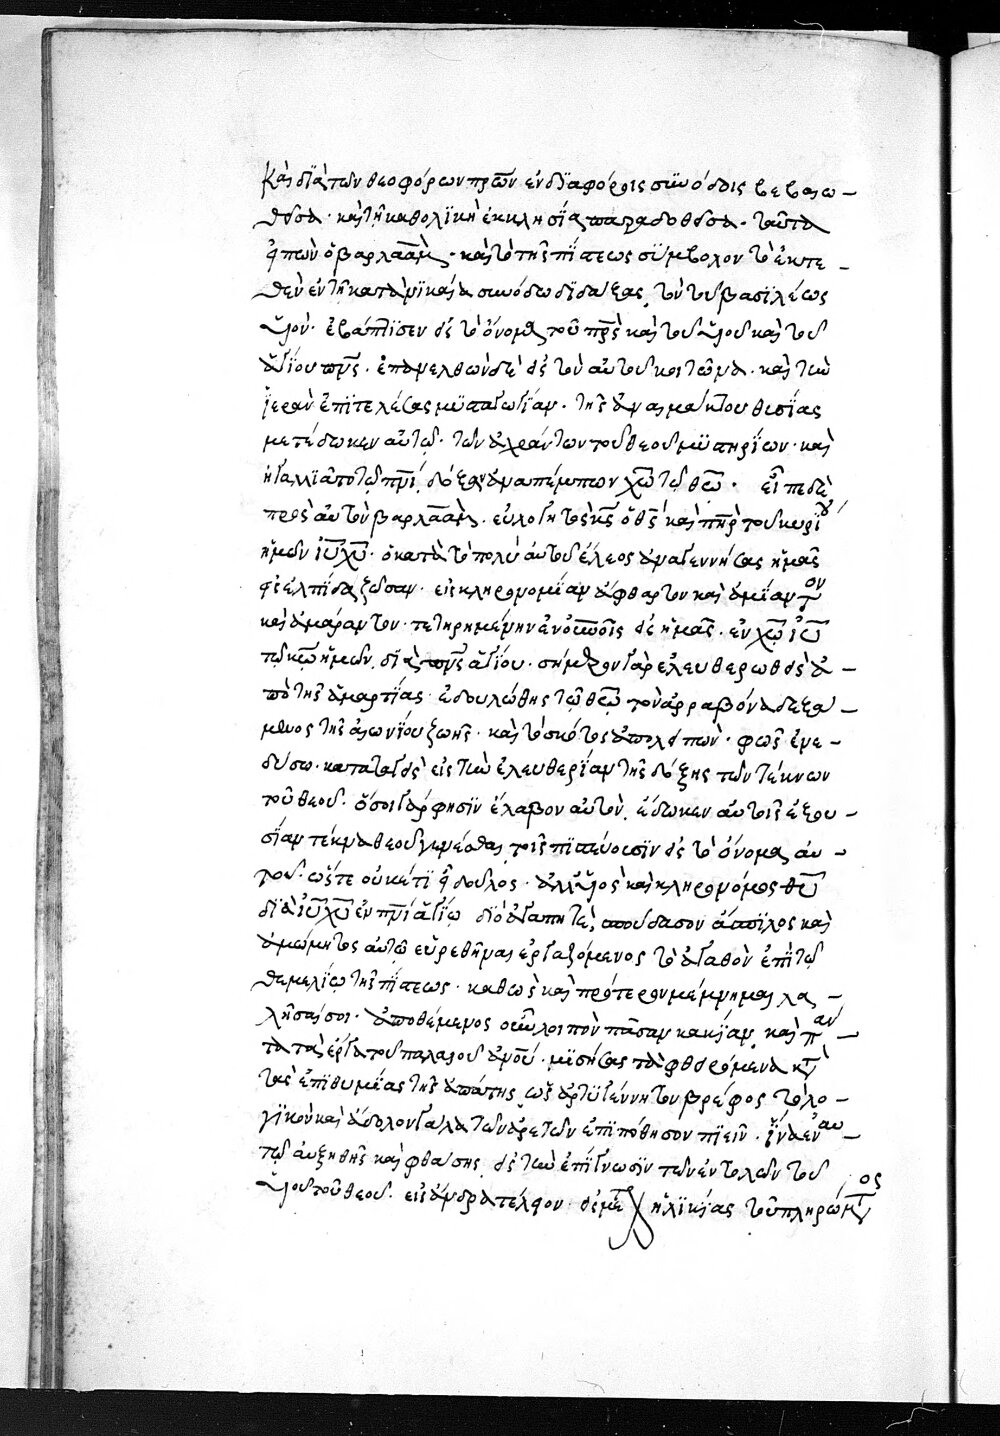 καὶ διὰ τῶν θεοφόρων πρ̅ω̅ν ἐν διαφόροις συνόδοις βεβαιω–
θεῖσα· καὶ τῆ καθολικῆ ἐκκλησία παραδοθεῖσα· ταῦτα
εἰπὼν ὁ βαρλαὰμ· καὶ τὸ τῆς πίστεως σύμβολον τὸ ἐκτε–
θὲν ἐν τῆ κατὰ νίκαια συνόδω διδάξας τὸν τοῦ βασιλέως
υἱόν· ἐβάπτισεν εἰς τὸ ὄνομα τοῦ πρ̅ς καὶ τοῦ υἱοῦ καὶ τοῦ
ἁγίου πν̅ς· ἐπανελθὼν δὲ εἰς τὸν αὐτοῦ κοιτῶνα· καὶ τὴν
ἱερὰν ἐπιτελέσας μυσταγωγίαν· τῆς ἀναιμάκτου θυσίας
μετέδωκεν αὐτῷ· τῶν ἀχράντων τοῦ θεοῦ μυστηρίων· καὶ
ἠγαλλιᾶτο τῷ πν̅ι, δόξαν ἀναπέμπων χ̅ω̅ τῷ θ̅ω̅· εἶπε δὲ
πρὸς αὐτὸν βαρλαὰμ· εὐλογητὸς κ̅ς ὁ θ̅ς καὶ πη̅ρ τοῦ κυρίου
ἡμῶν ι̅υ̅ χ̅υ̅· ὁ κατὰ τὸ πολὺ αὐτοῦ ἔλεος ἀναγεννήσας ἡμᾶς
εἰς ἐλπίδα ζῶσαν· εἰς κληρονομίαν ἄφθαρτον καὶ ἀμίαντον
καὶ ἀμάραντον· τετηρημένην ἐν ο̅υ̅ν̅οῖς εἰς ἡμᾶς· ἐν χ̅ω̅ ι̅υ̅
τῷ κ̅ω̅ ἡμῶν, διὰ πν̅ς ἁγίου· σήμερον γὰρ ἐλευθερωθεὶς ἀ–
πὸ τῆς ἁμαρτίας· ἐδουλώθης τῷ θ̅ω̅ τὸν ἀρραβῶνα δεξά–
μενος τῆς αἰωνίου ζωῆς· καὶ τὸ σκότος ἀπολιπών· φῶς ἐνε–
δύσω· καταταγεὶς εἰς τὴν ἐλευθερίαν τῆς δόξης τῶν τέκνων
τοῦ θεοῦ· ὅσοι γάρ φησιν ἔλαβον αὐτὸν, ἔδωκεν αὐτοῖς ἐξου–
σίαν τέκνα θεοῦ γενέσθαι τοῖς πιστεύουσιν εἰς τὸ ὄνομα αὐ–
τοῦ· ὥστε οὐκέτι εἶ δοῦλος· ἀλλ' υἱὸς καὶ κληρονόμος θ̅υ̅
διὰ ι̅υ̅ χ̅υ̅ ἐν πν̅ι ἁγίω διὸ ἀγαπητέ, σπούδασον ἄσπιλος καὶ
ἀμώμητος αὐτῷ εὑρεθῆναι ἐργαζόμενος τὸ ἀγαθὸν ἐπὶ τῷ
θεμελίῳ τῆς πίστεως· καθὼς καὶ πρότερον μέμνημαι λα–
λῆσαί σοι· ἀποθέμενος οὖν λοιπὸν πᾶσαν κακίαν, καὶ πάν–
τα τὰ ἔργα τοῦ παλαιοῦ ἀν̅ο̅υ̅· μισήσας τὰ φθειρόμενα κατὰ
τὰς ἐπιθυμίας τῆς ἀπάτης, ὡς ἀρτιγέννητον βρέφος τὸ λο–
γικὸν καὶ ἄδολον γάλα τῶν ἀρετῶν ἐπιπόθησον πιεῖν· ἵνα ἐν αὐ–
τῷ αὐξηθῆς καὶ φθάσης εἰς τὴν ἐπίγνωσιν τῶν ἐντολῶν τοῦ
υἱοῦ τοῦ θεοῦ· εἰς ἄνδρα τέλειον· εἰς μέτρον ἡλικίας τοῦ πληρώματος